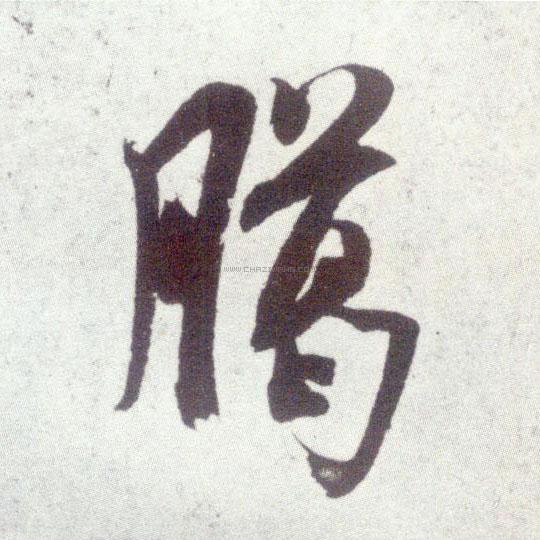 騰
WWW.CHAZIDIAN.COM